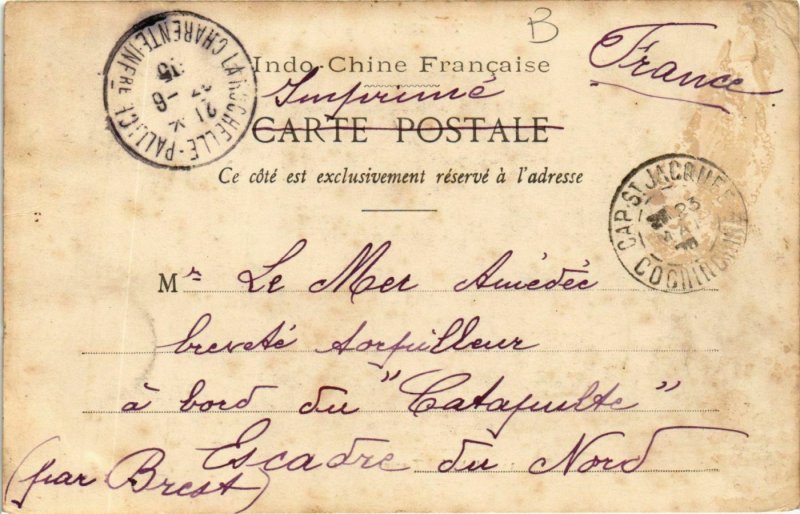 B
France
Indo-Chine Française
Imprimé
CARTE POSTALE
Ce côté est exclusivement réservé à l'adresse
LA ROCHELLE-PALLICE
CHARENTE-INFRE
21
6
CAP-ST JACQUES
23
COCHINCHINE
Mr Le Mer Amédée
breveté torpilleur
à bord du "Catapulte"
Escadre du Nord
(par Brest)